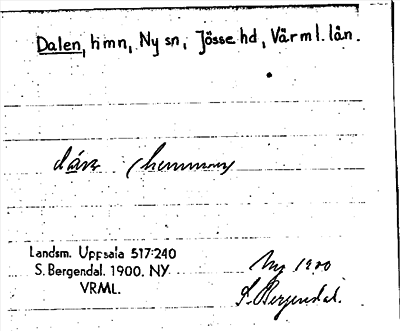 Dalen, hmn, Ny sn, Jösse hd, Värml. län.
(hemman)
Landsm. Uppsala 517:240
S. Bergendal. 1900. NY.
VRML.
Ny 1900
S. Bergendal.